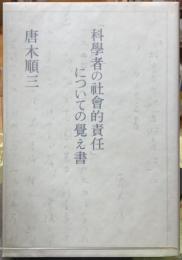 「科學者の社會的責任」
についての覺え書
唐木順三